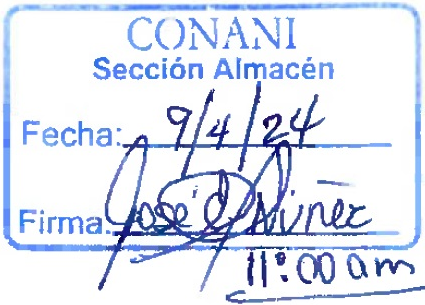 CONANI
Sección Almacén
Fecha: 9/4/24
Firma: Jose Núñez
11:00 am